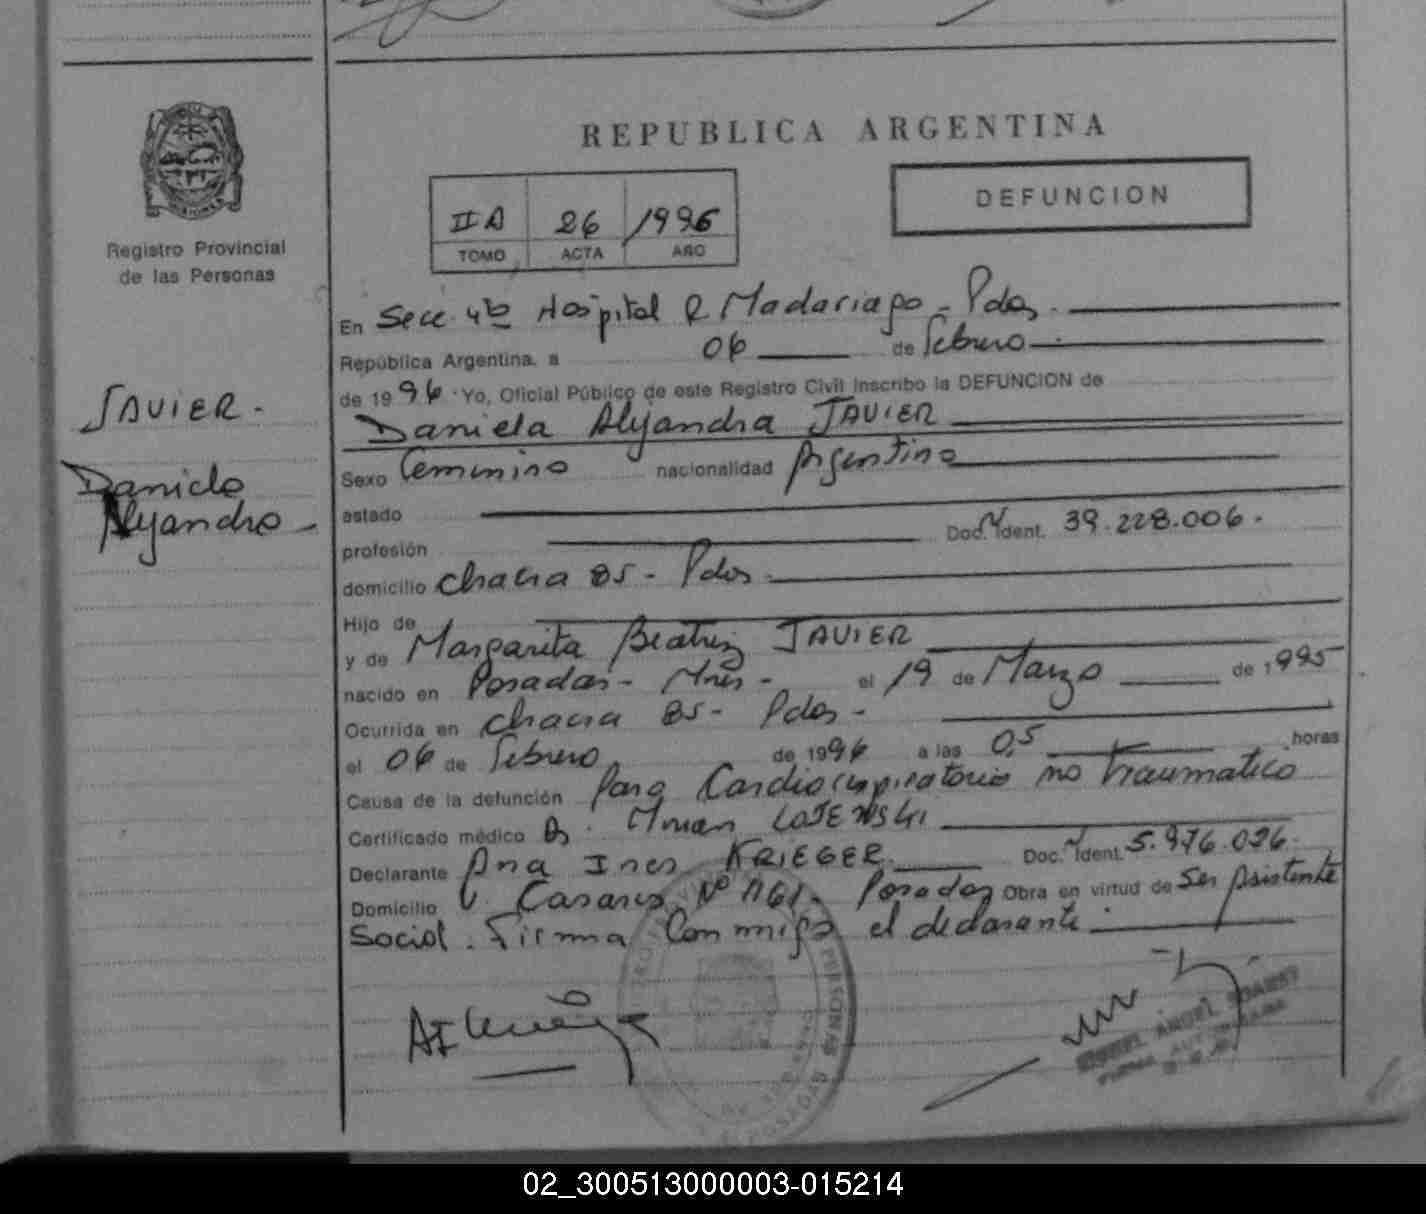 REPUBLICA ARGENTINA
DEFUNCION
II A 26 1996
TOMO ACTA AÑO
Registro Provincial
de las Personas
JAVIER.
Daniela
Alejandra
En Secc. 4ta Hospital R Madariaga - Pdas.
República Argentina, a 06 de Febrero
de 1996 Yo, Oficial Público de este Registro Civil inscribo la DEFUNCION de
Daniela Alejandra JAVIER
Sexo Femenino nacionalidad Argentina
estado
profesión Doc. Ident. 39.228.006.
domicilio Chacra 85 - Pdas.
Hijo de
y de Margarita Beatriz JAVIER
nacido en Posadas - Mnes - el 19 de Marzo de 1995
Ocurrida en Chacra 85 - Pdas -
el 06 de Febrero de 1996 a las 0,5 horas
Causa de la defunción Paro Cardiorespiratorio no traumatico
Certificado médico Dr.
Declarante Ana Ines KRIEGER Doc. Ident. 5.976.026.
Domicilio Casares Nº 1161. Posadas Obra en virtud de Ser Asistente
Social. Firma Conmigo el declarante.
PERSONAS
POSADAS
ANGEL
02_300513000003-015214